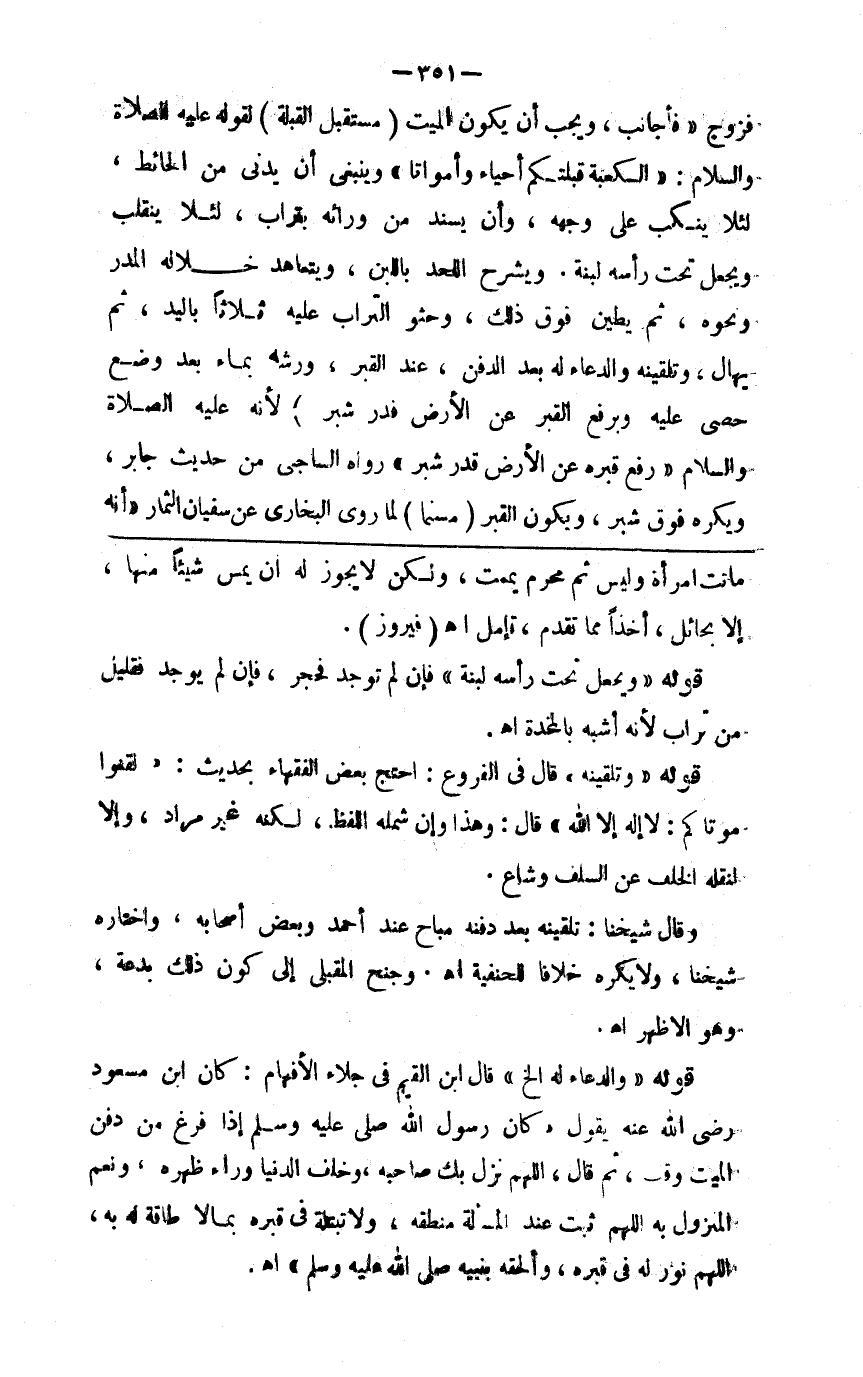 — ٣٥١ —
فزوج « فأجانب ، ويجب أن يكون الميت ( مستقبل القبلة ) لقوله عليه الصلاة
والسلام : « الكعبة قبلتكم أحياء وأمواتا » وينبغى أن يدنى من الحائط ،
لئلا ينكب على وجهه ، وأن يسند من ورائه بتراب ، لئلا ينقلب
ويجعل تحت رأسه لبنة . ويشرح اللحد باللبن ، ويتعاهد خلاله المدر
ونحوه ، ثم يطين فوق ذلك ، وحثو التراب عليه ثلاثاً باليد ، ثم
يهال ، وتلقينه والدعاء له بعد الدفن ، عند القبر ، ورشه بماء بعد وضع
حصى عليه ويرفع القبر عن الأرض قدر شبر ) لأنه عليه الصلاة
والسلام « رفع قبره عن الأرض قدر شبر » رواه الساجى من حديث جابر ،
ويكره فوق شبر ، ويكون القبر ( مسنما ) لما روى البخارى عن سفيان التمار « أنه
ماتت امرأة وليس ثم محرم يممت ، ولكن لايجوز له ان يمس شيئاً منها ،
إلا بحائل ، أخذاً مما تقدم ، تإمل اه ( فيروز ) .
قوله « ويجعل تحت رأسه لبنة » فإن لم توجد فحجر ، فإن لم يوجد فقليل
من تراب لأنه أشبه بالمخدة اه .
قوله « وتلقينه ، قال فى الفروع : احتج بعض الفقهاء بحديث : « لقنوا
موتاكم : لاإله إلا الله » قال : وهذا وإن شمله اللفظ ، لكنه غير مراد ، وإلا
لنقله الخلف عن السلف وشاع .
وقال شيخنا : تلقينه بعد دفنه مباح عند أحمد وبعض أصحابه ، واختاره
شيخنا ، ولايكره خلافا للحنفية اه . وجنح المقبلى إلى كون ذلك بدعة ،
وهو الاظهر اه .
قوله « والدعاء له الخ » قال ابن القيم فى جلاء الأفهام : كان ابن مسعود
رضى الله عنه يقول « كان رسول الله صلى عليه وسلم إذا فرغ من دفن
الميت وقف ، ثم قال ، اللهم نزل بك صاحبه ، وخلف الدنيا وراء ظهره ، ونعم
المنزول به اللهم ثبت عند المسألة منطقه ، ولاتبتلة فى قبره بمالا طاقة له به ،
اللهم نور له فى قبره ، وألحقه بنبيه صلى الله عليه وسلم » اه .